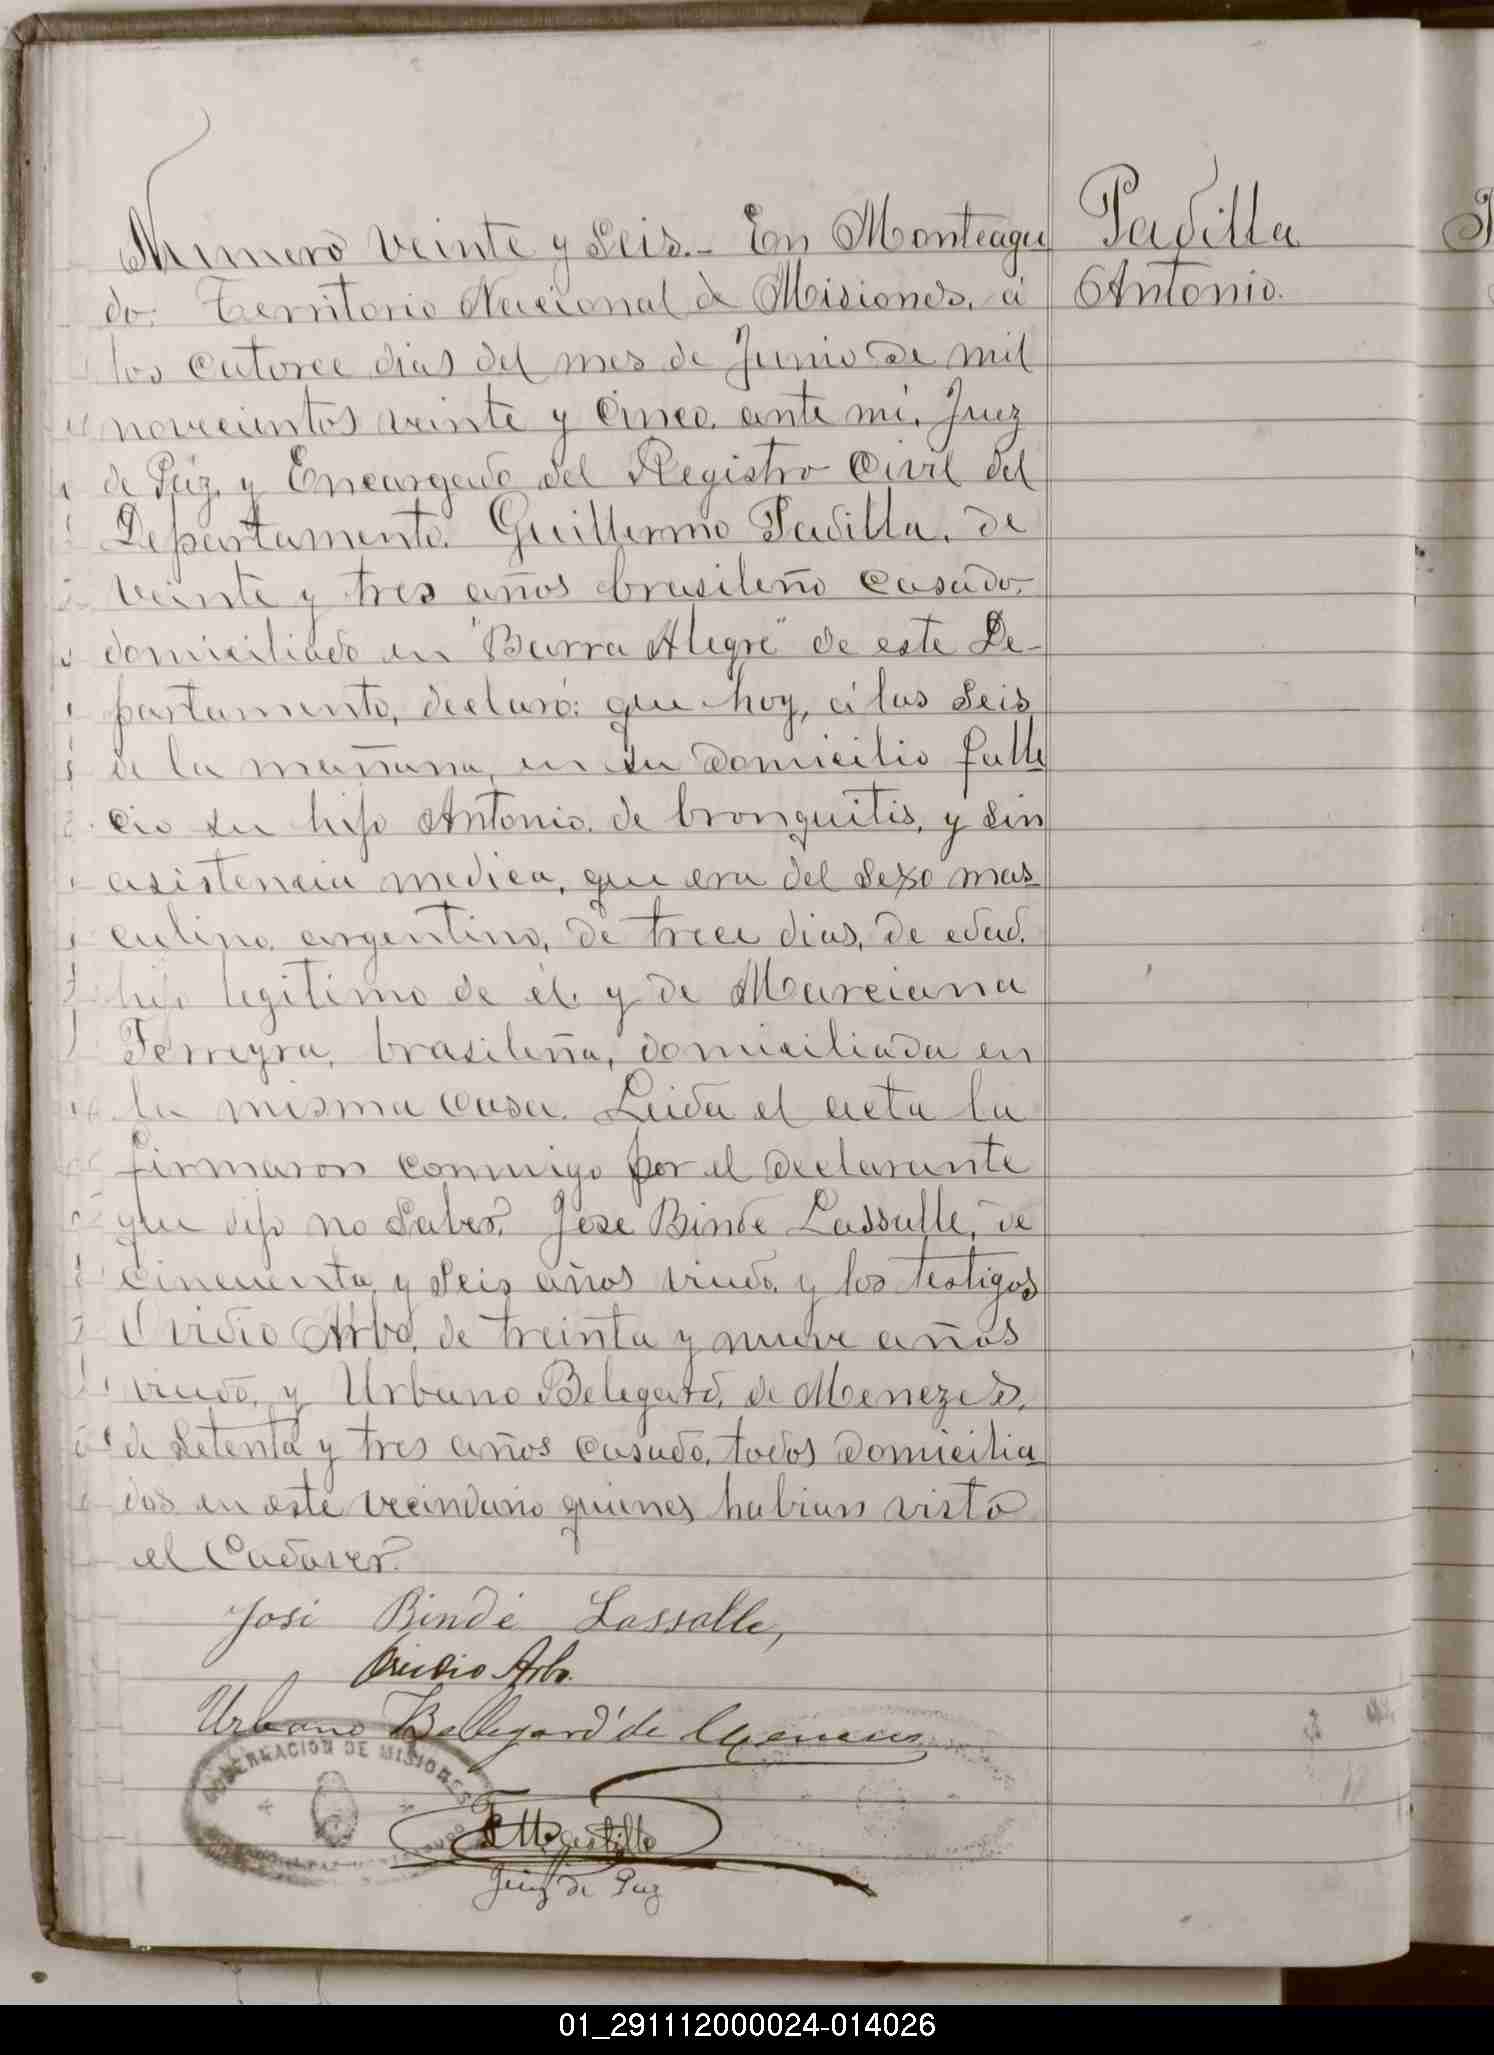 Numero veinte y seis.- En Monteagu
do. Territorio Nacional de Misiones, á
los catorce dias del mes de Junio de mil
novecientos veinte y cinco, ante mi, Juez
de Páz y Encargado del Registro Civil del
Departamento. Guillermo Padilla, de
veinte y tres años brasileño casado,
domiciliado en "Barra Alegre" de este De-
partamento, declaró: que hoy, á las seis
de la mañana, en su domicilio falle
cio su hijo Antonio, de bronquitis, y sin
asistencia medica, que era del sexo mas
culino, argentino, de trece dias, de edad,
hijo legitimo de él, y de Marciana
Ferreyra, brasileña, domiciliada en
la misma casa. Leida el acta la
firmaron conmigo por el declarante
que dijo no saber, Jose Binde Lassalle, de
cincuenta y seis años viudo, y los testigos
Ovidio Arbo, de treinta y nueve años
viudo, y Urbano Belegard, de Menezes,
de setenta y tres años casado, todos domicilia
dos en este vecindario quienes habian visto
el Cadaver.
José Bindé Lassalle,
Ovidio Arbo.
Urbano Bellegard de Menezes
GOBERNACION DE MISIONES
Juez de Paz
Padilla
Antonio.
01_291112000024-014026